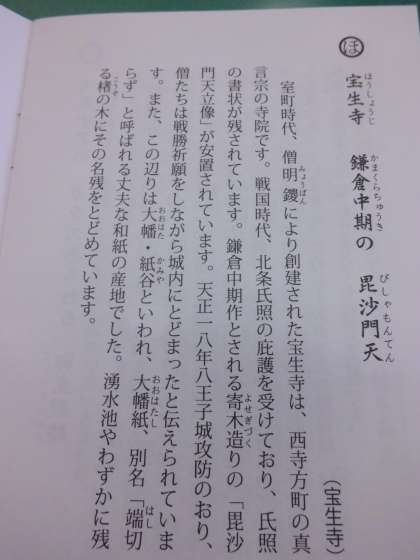 ほ 宝生寺 鎌倉中期の 毘沙門天
(宝生寺)
室町時代、僧明鑁により創建された宝生寺は、西寺方町の真
言宗の寺院です。戦国時代、北条氏照の庇護を受けており、氏照
の書状が残されています。鎌倉中期作とされる寄木造りの「毘沙
門天立像」が安置されています。天正一八年八王子城攻防のおり、
僧たちは戦勝祈願をしながら城内にとどまったと伝えられていま
す。また、この辺りは大幡・紙谷といわれ、大幡紙、別名「端切
らず」と呼ばれる丈夫な和紙の産地でした。湧水池やわずかに残
る楮の木にその名残をとどめています。